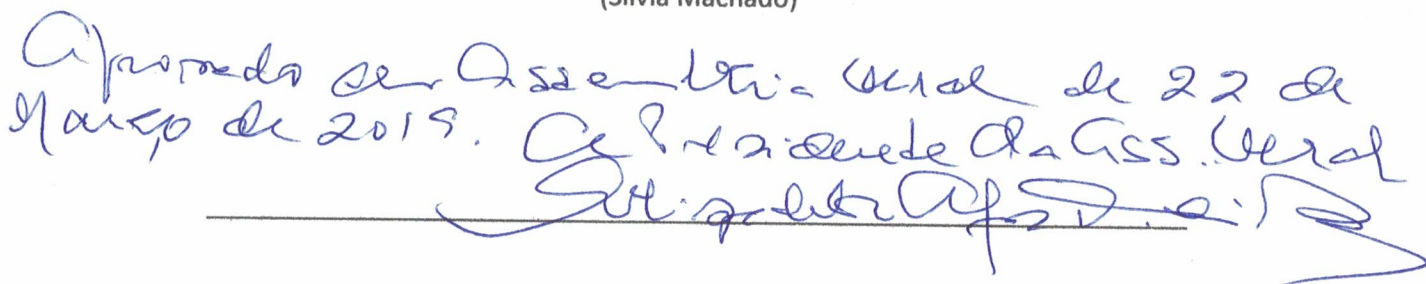 (Silvia Machado)
Aprovado em Assembleia Geral de 22 de
Março de 2019. A Presidente da Ass. Geral